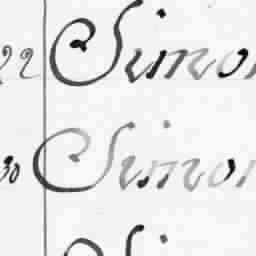 22 Simon
30 Simon